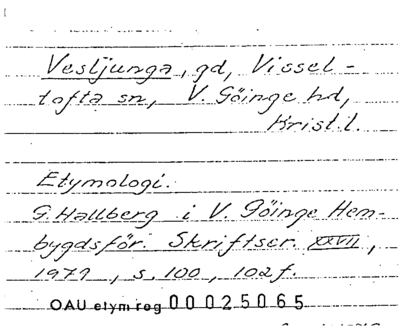 Vesljunga, gd, Vissel-
tofta sn, V. Göinge hd,
Krist.l.
Etymologi.
G. Hallberg i V. Göinge Hem-
bygdsför. Skriftser. XXVII,
1979, s. 100, 102 f.
OAU etym reg 00025065